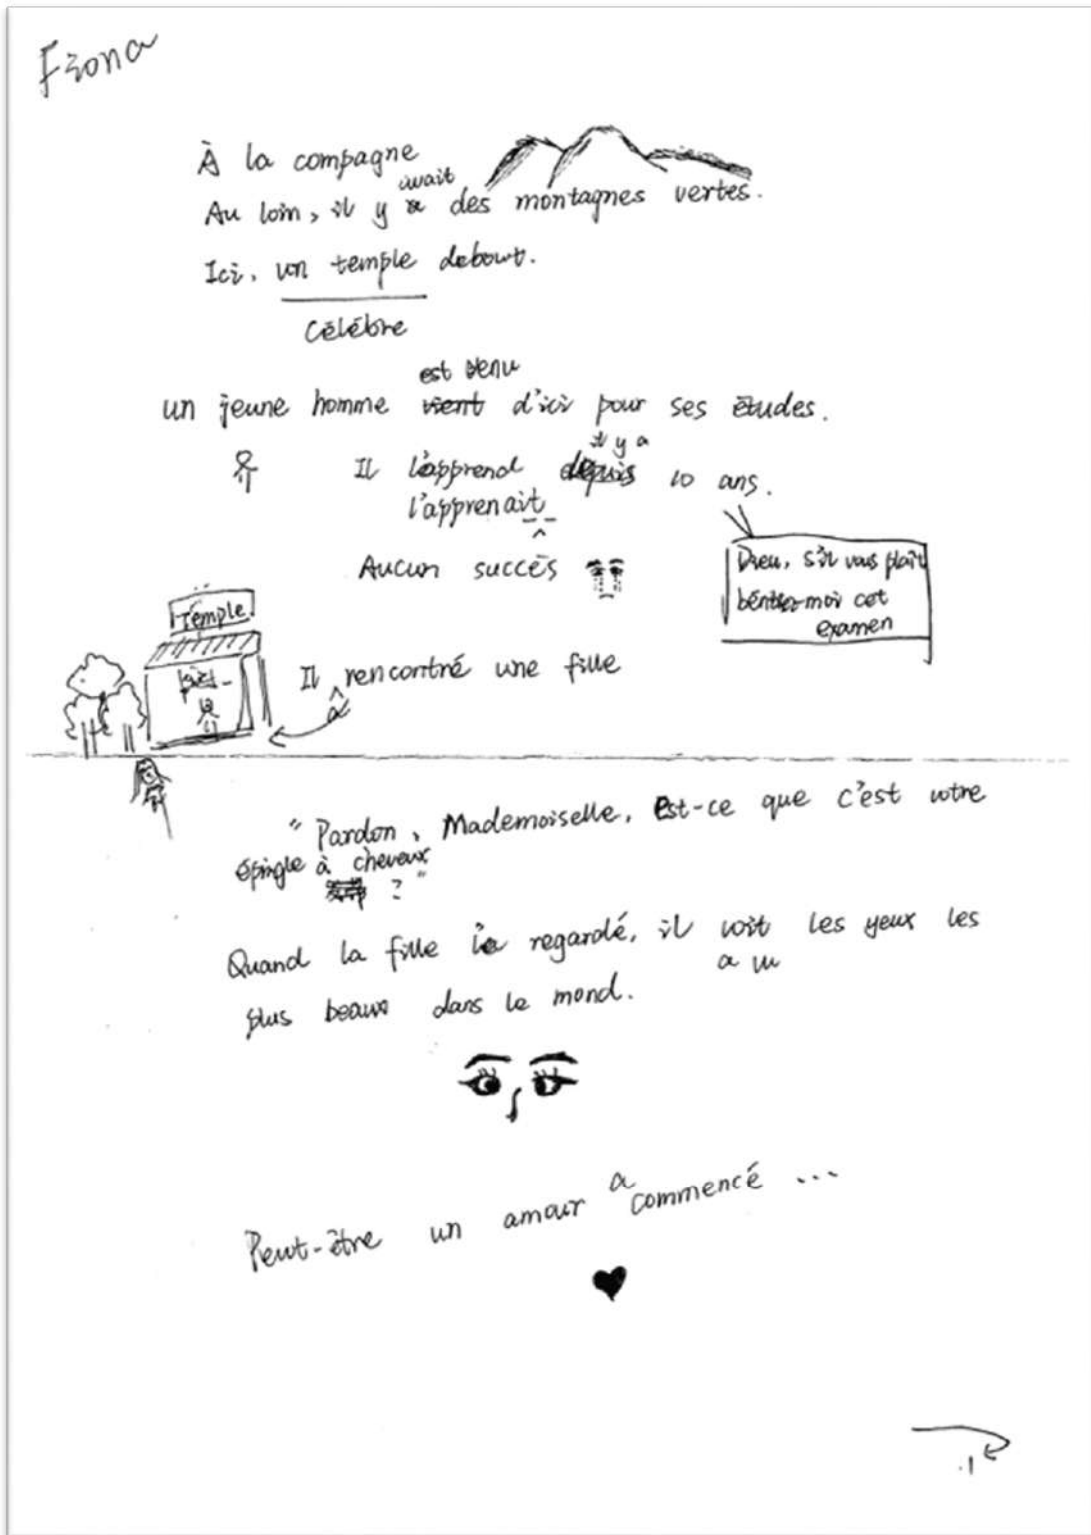 Fiona
À la compagne
avait
Au loin, il y a des montagnes vertes.
Ici, un temple debout.
Célébre
est venu
un jeune homme vient d'ici pour ses études.
il y a
Il l'apprend depuis 10 ans.
l'apprenait
Aucun succès
Dieu, s'il vous plaît
moi cet
examen
Temple
Il rencontré une fille
a
" Pardon, Mademoiselle, Est-ce que c'est votre
épingle à cheveux
? "
Quand la fille le regardé, il voit les yeux les
a vu
plus beaux dans le mond.
a
Peut-être un amour commencé ...